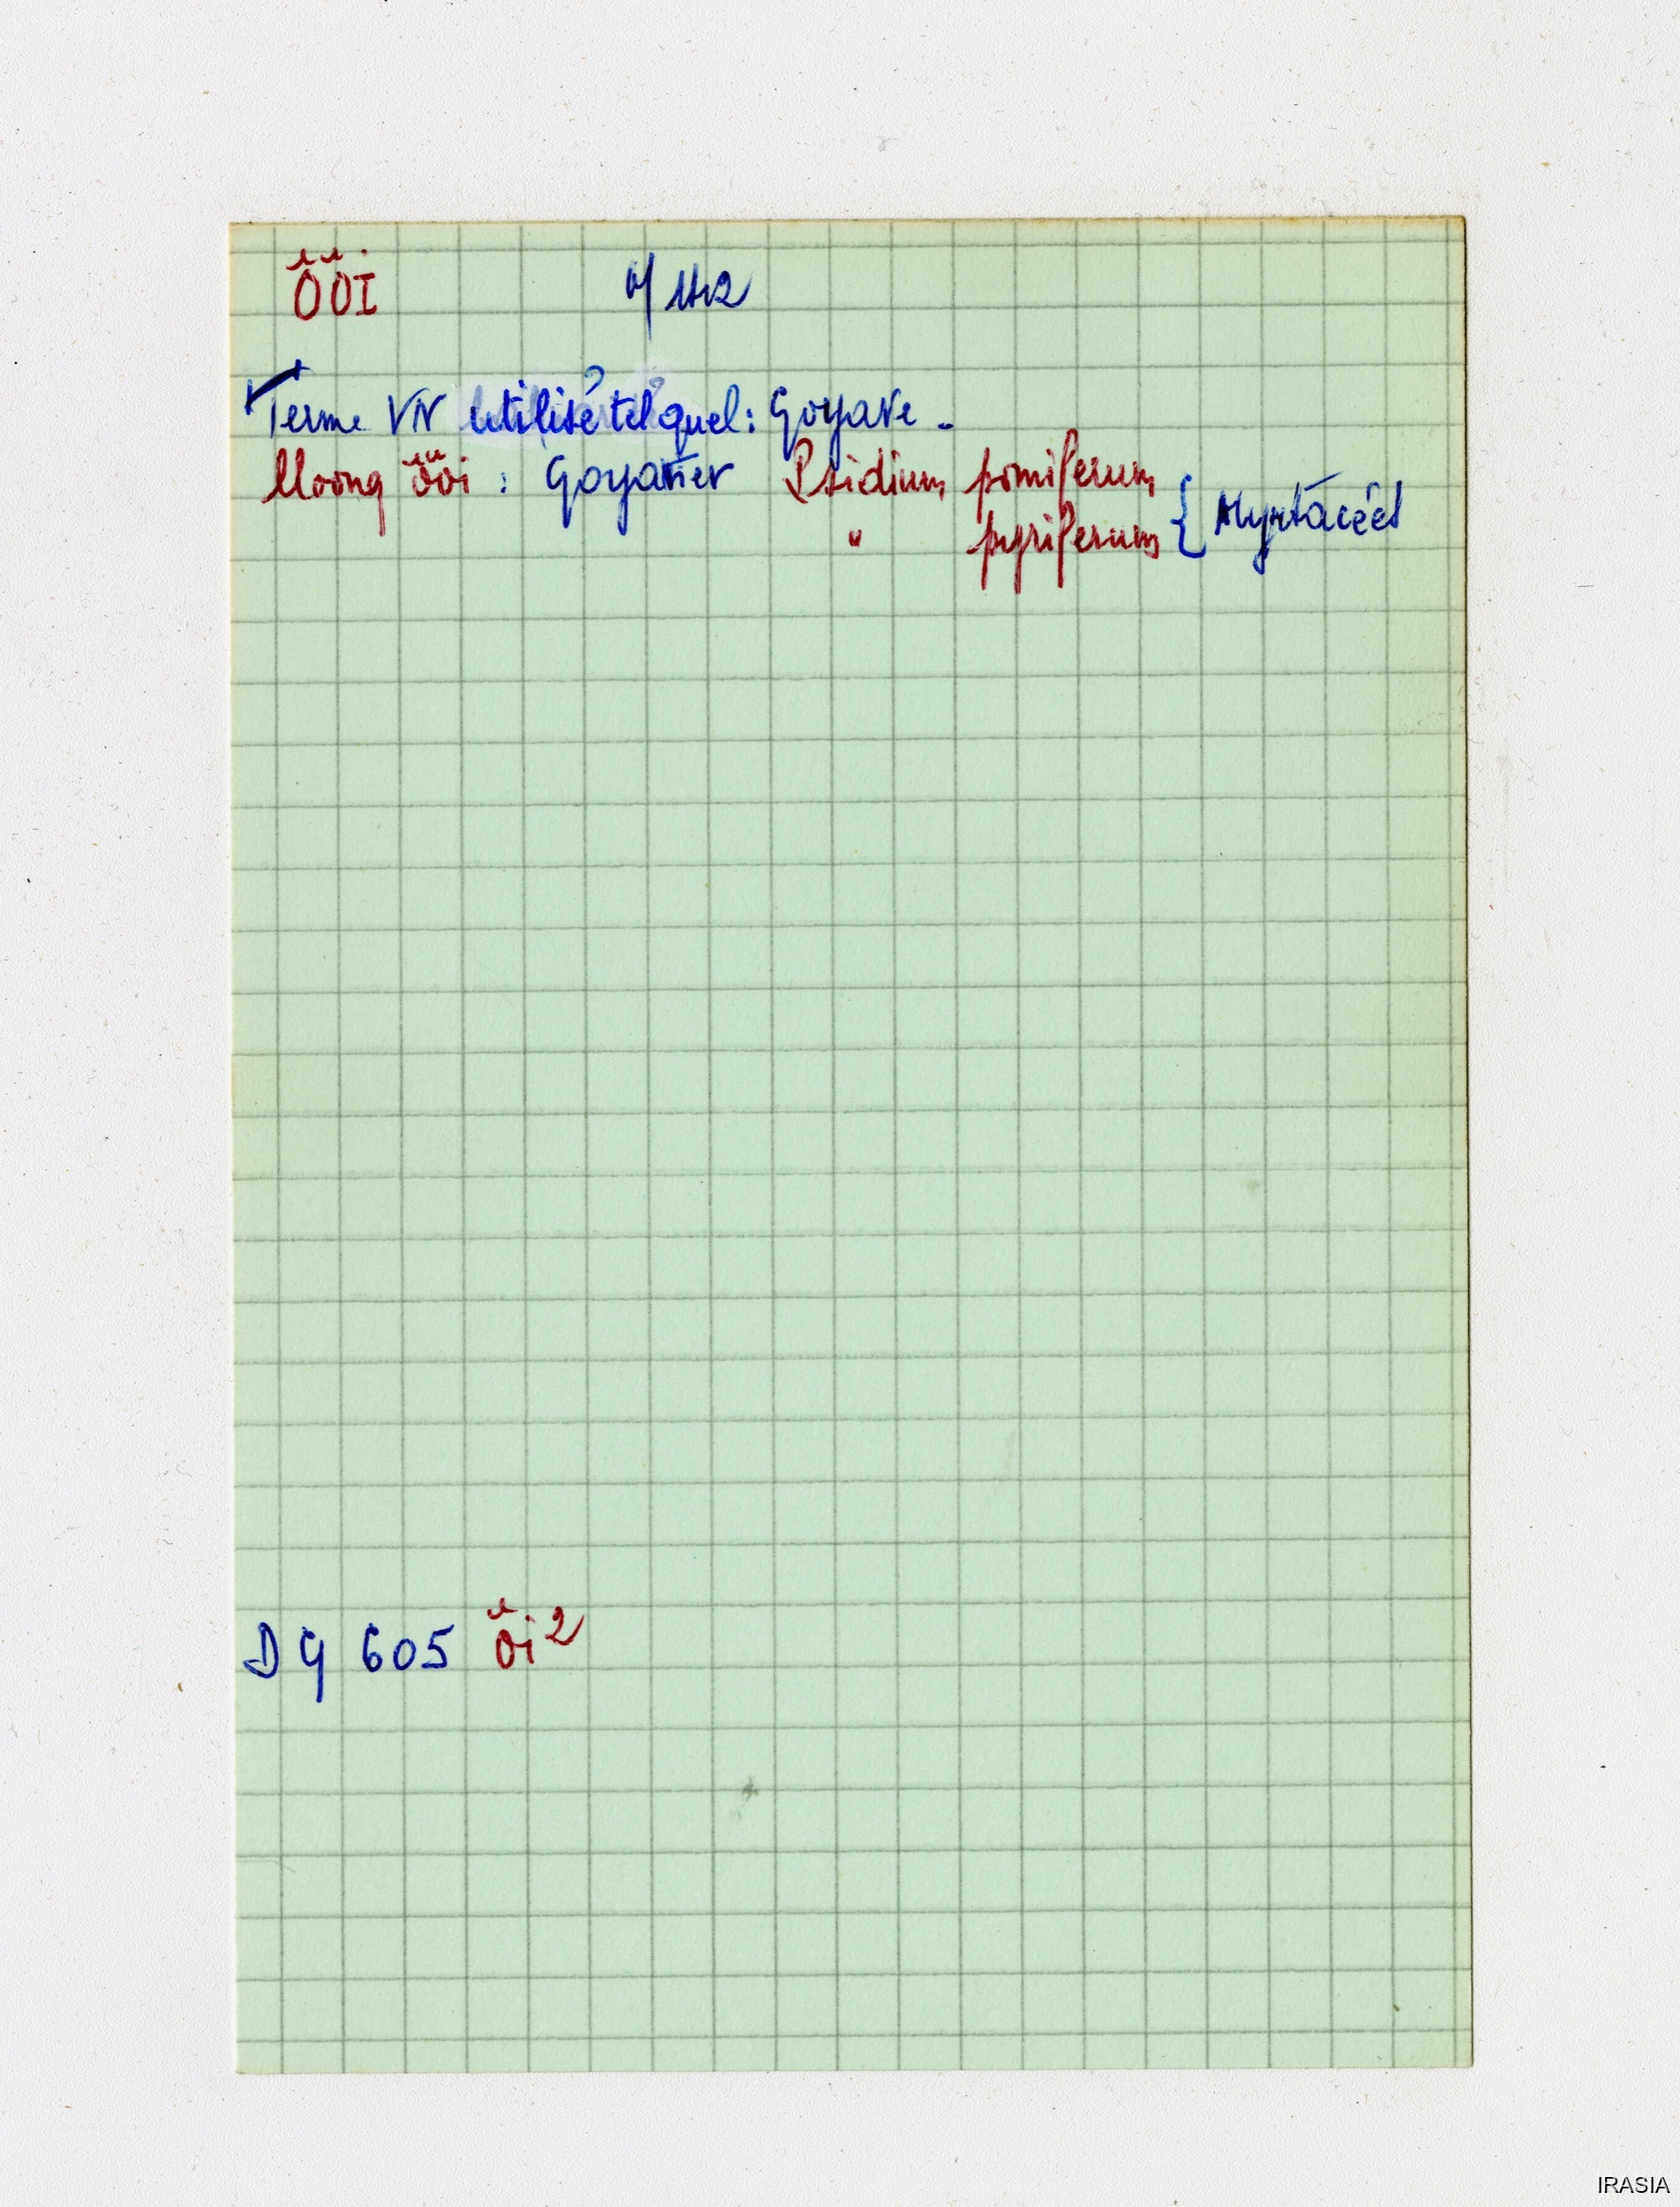 ỔỔI
Terme VN utilisé tel quel : Goyave -
Moong ổổi : Goyavier Psidium pomiferum
" pyriferum { Myrtacées
DG 605 ổi 2
IRASIA